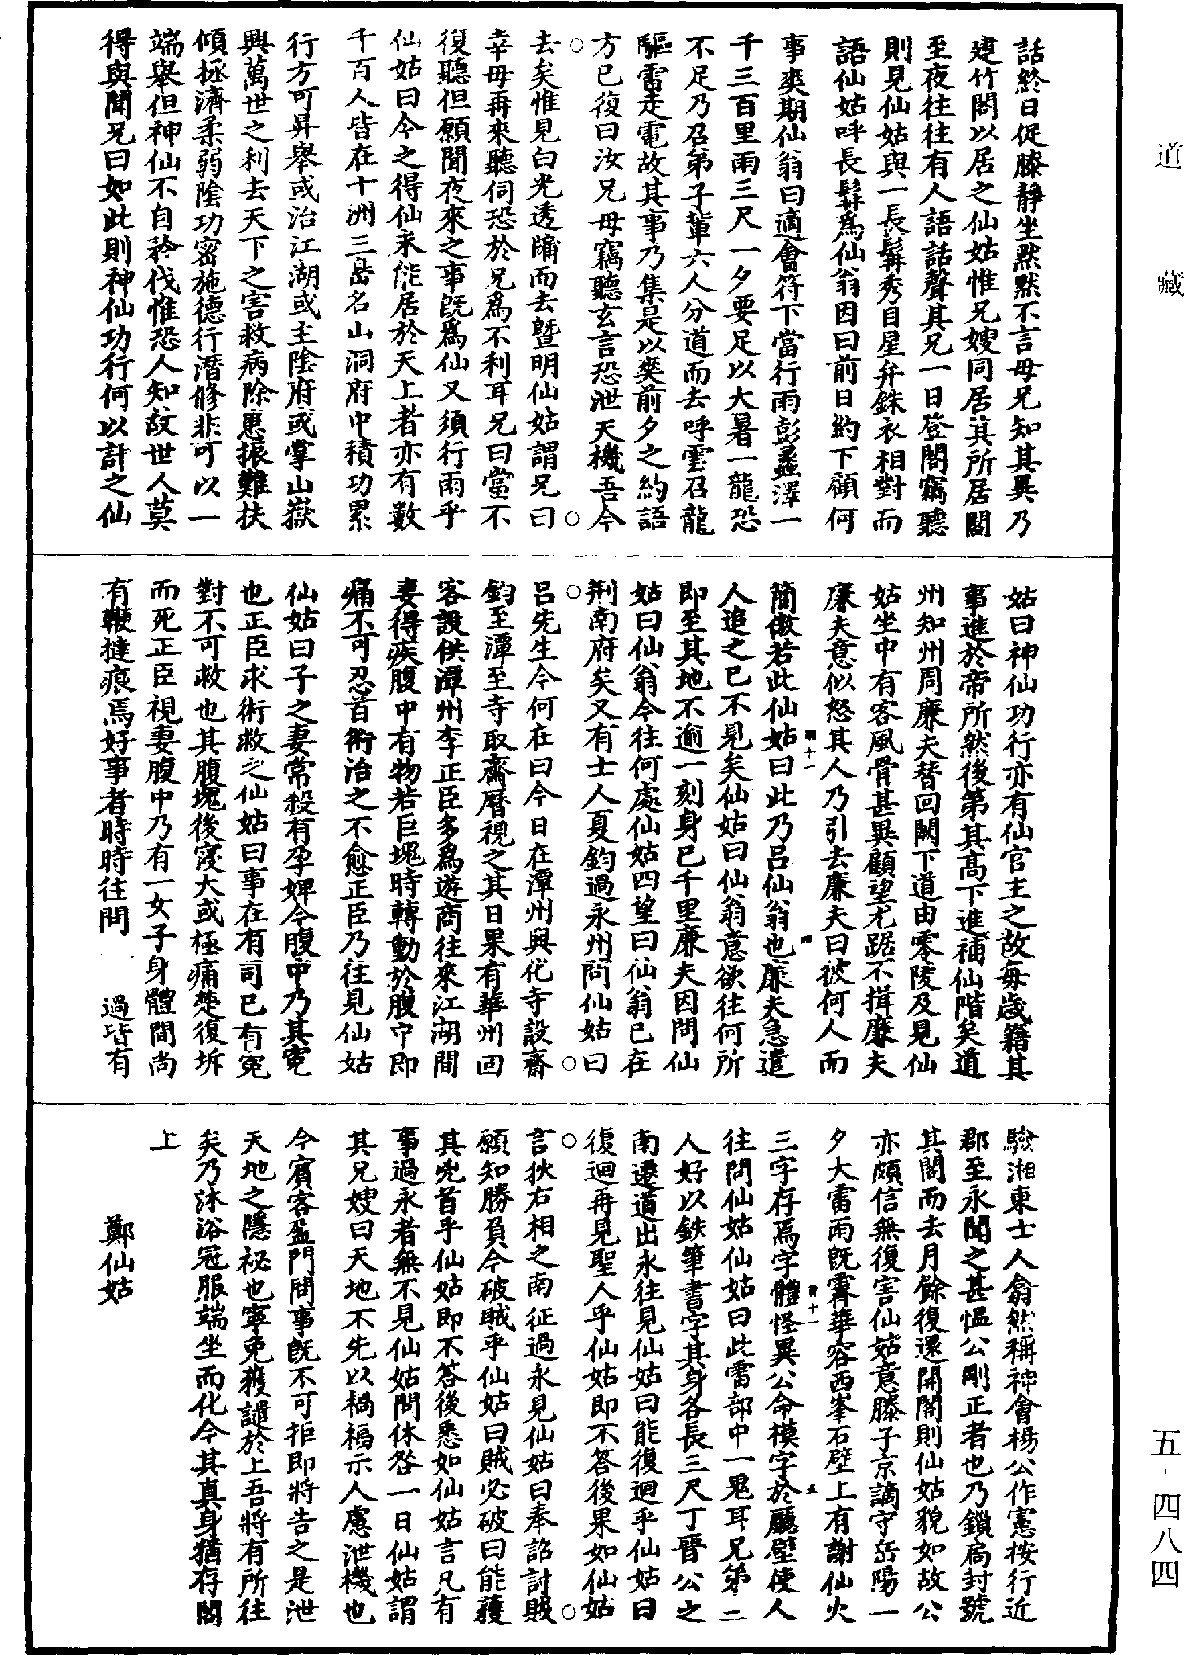 道藏
五·四八四
話終日促膝靜坐默默不言母兄知其異乃
建竹閣以居之仙姑惟兄嫂同居其所居閣
至夜往往有人語話聲其兄一日登閣竊聽
則見仙姑與一長髯秀目星弁銖衣相對而
語仙姑呼長髯為仙翁因曰前日約下顧何
事爽期仙翁曰適會符下當行雨彭蠡澤一
千三百里雨三尺一夕要足以大暑一龍恐
不足乃召弟子輩六人分道而去呼雲召龍
驅雷走電故其事乃集是以爽前夕之約語
方已復曰汝兄母竊聽玄言恐泄天機吾今
去矣惟見白光透牖而去暨明仙姑謂兄曰
幸毋再來聽伺恐於兄為不利耳兄曰當不
復聽但願聞夜來之事既為仙又須行雨乎
仙姑曰今之得仙未能居於天上者亦有數
千百人皆在十洲三島名山洞府中積功累
行方可昇舉或治江湖或主陰府或掌山嶽
興萬世之利去天下之害救病除患振難扶
傾拯濟柔弱陰功密施德行潛修非可以一
端舉但神仙不自矜伐惟恐人知故世人莫
得與聞兄曰如此則神仙功行何以計之仙
姑曰神仙功行亦有仙官主之故每歲籍其
事進於帝所然後第其高下進補仙階矣道
州知州周廉夫替回闕下道由零陵及見仙
姑坐中有客風骨甚異顧望尤踞不揖廉夫
廉夫意似怒其人乃引去廉夫曰彼何人而
簡傲若此仙姑曰此乃呂仙翁也廉夫急遣
人追之已不見矣仙姑曰仙翁意欲往何所
即至其地不逾一刻身已千里廉夫因問仙
姑曰仙翁今往何處仙姑四望曰仙翁已在
荆南府矣又有士人夏鈞過永州問仙姑曰
呂先生今何在曰今日在潭州興化寺設齋
鈞至潭至寺取齋曆視之其日果有華州回
客設供潭州李正臣多為遊商往來江湖間
妻得疾腹中有物若巨塊時轉動於腹中即
痛不可忍首術治之不愈正臣乃往見仙姑
仙姑曰子之妻常殺有孕婢今腹中乃其冤
也正臣求術救之仙姑曰事在有司已有冤
對不可救也其腹塊後寖大或極痛楚復坼
而死正臣視妻腹中乃有一女子身體間尚
有鞭撻痕焉好事者時時往問 過皆有
驗湘東士人翕然稱神會楊公作憲按行近
郡至永聞之甚慍公剛正者也乃鎖扃封號
其閣而去月餘復還開閣則仙姑貌如故公
亦頗信無復害仙姑意滕子京謫守岳陽一
夕大雷雨既霽華容西峯石壁上有謝仙火
三字存焉字體怪異公命模字於廳壁使人
往問仙姑仙姑曰此雷部中一鬼耳兄弟二
人好以鉄筆書字其身各長三尺丁晉公之
南遷道出永往見仙姑曰能復迴乎仙姑曰
復迴再見聖人乎仙姑即不答後果如仙姑
言狄右相之南征過永見仙姑曰奉詔討賊
願知勝負今破賊乎仙姑曰賊必破曰能獲
其兇首乎仙姑即不答後悉如仙姑言凡有
事過永者無不見仙姑問休咎一日仙姑謂
其兄嫂曰天地不先以禍福示人慮泄機也
今賓客盈門問事既不可拒即將告之是泄
天地之隱祕也寧免獲譴於上吾將有所往
矣乃沐浴冠服端坐而化今其真身猶存閣
上
鄭仙姑